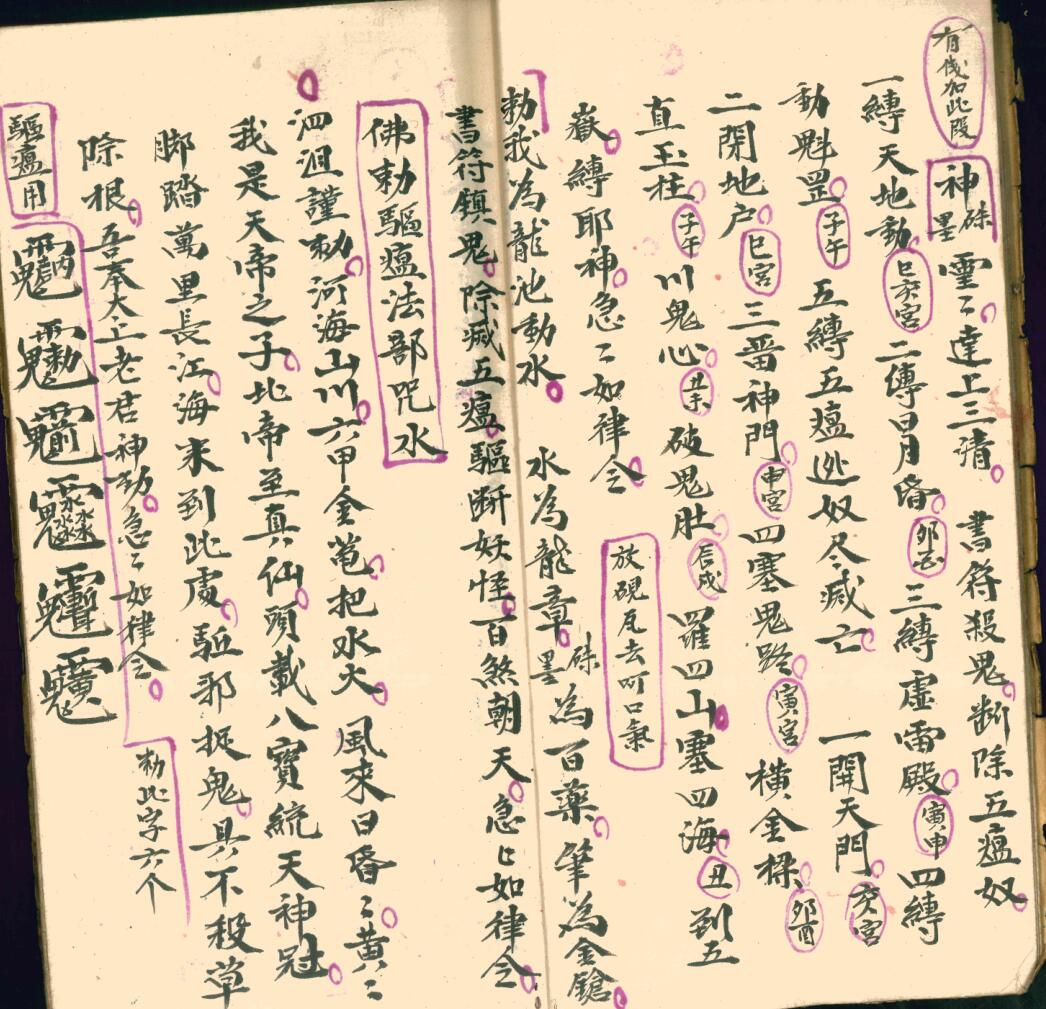 有錢加此段
神硃墨霊〻達上三清 書符殺鬼断除五瘟奴
一縛天地動巳亥宮二縛日月昏卯酉三縛虛雷殿寅申四縛
動魁罡子午五縛五瘟迯奴尽滅亡 一開天門亥宮
二閉地户巳宮三番神門申宮四塞鬼路寅宮橫金樑卯酉
直玉柱子午川鬼心丑未破鬼肚辰戌羅四山塞四海丑到五
嶽縛耶神急〻如律令 放硯瓦去呵口氣
勅我為龍池動水 水為龍章硃墨為百藥筆為金鎗
書符鎮鬼除滅五瘟驅断妖怪百煞朝天急〻如律令
佛勅驅瘟法部咒水
泗沮謹勅河海山川六甲金芚把水火風來日昏〻黄〻
我是天帝之子北帝至真仙頭載八寶統天神冠
脚踏萬里長江海来到此處駈邪捉鬼具不殺草
除根吾奉太上老君神勅急〻如律令
勅此字六个
驅瘟用